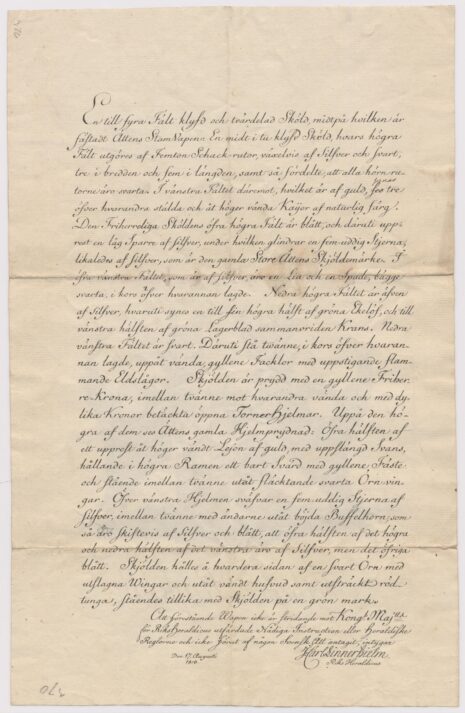 370
En till fyra Fält klyfd och tvärdelad Sköld, midtpå hvilken är
fästadt Ättens StamVapen: En midt i tu klyfd Sköld, hvars högra
Fält utgöres af Femton Schack-rutor, växelvis af Silfver och Svart,
tre i bredden och fem i längden, samt så fördelte, att alla hörn ru-
torne äro svarta. I vänstra Fältet däremot, hvilket är af guld, synes tre
öfver hvarandra stälda och åt höger vända Kajor af naturlig färg.
Den Friherrliga Sköldens öfra högra Fält är blått, och däruti upp-
rest en låg Sparre af Silfver, under hvilken glindrar en fem-uddig Stjerna,
likaledes af Silfver, som är den gamla Store Ättens Skjöldemärke. I
öfra vänstra Fältet, som är af Silfver, äro en Lia och en Spade, bägge
svarta, i kors öfver hvarannan lagde. Nedra högra Fältet är äfven
af Silfver, hvaruti synes en till sin högra hälft af gröna Ekelöf, och till
vänstra hälften af gröna Lagerblad sammanvriden Krans. Nedra
vänstra Fältet är Svart. Däruti stå tvänne, i kors öfver hvaran-
nan lagde, uppåt vända, gyllene Facklor med uppstigande flam-
mande Eldslågor. Skjölden är prydd med en gyllene Friher-
re-Krona, imellan tvänne mot hvarandra vända och med dy-
lika Kronor betäckta öppna TornerHjelmar. Uppå den hö-
gra af dem ses Ättens gamla Hjelmprydnad: Öfra hälften af
ett upprest åt höger vändt Lejon af guld, med uppslängd Svans,
hållande i högra Ramen ett bart Svärd med gyllene Fäste
och stående imellan tvänne utåt flächtande svarta Örn vin-
gar. Öfver vänstra Hjelmen sväfvar en fem-uddig Stjerna af
Silfver, imellan tvänne med ändarne utåt böjda Buffelhorn, som
så äro skifteris af Silfver och blått, att öfra hälften af det högra
och nedra hälften af det vänstra äro af Silfver, men det öfriga
blått. Skjölden hålles å hvardera sidan af en svart Örn med
utslagna Wingar och utåt vändt hufvud samt utsträckt röd
tunga, ståendes tillika med Skjölden på en grön mark.
Att förestående Wapen icke är stridande mot Kongl. Maj:ts
för RiksHeraldicus utfärdade Nådiga Instruction eller Heraldiske
Reglorne och icke förut af någon Svensk Ätt antaget, intygar
Carl Linnerhielm
Riks Heraldicus
Den 17. Augusti
370